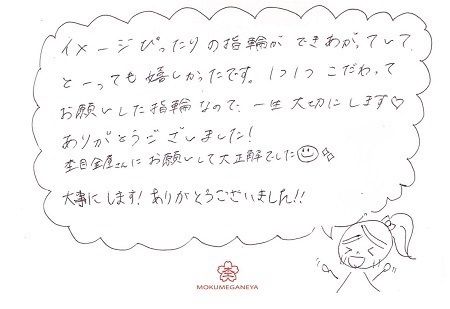 イメージぴったりの指輪ができあがっていて
とーっても嬉しかったです。1つ1つこだわって
お願いした指輪なので、一生大切にします♡
ありがとうございました!
杢目金屋さんにお願いして大正解でした☺
大事にします!ありがとうございました!!
杢
MOKUMEGANEYA